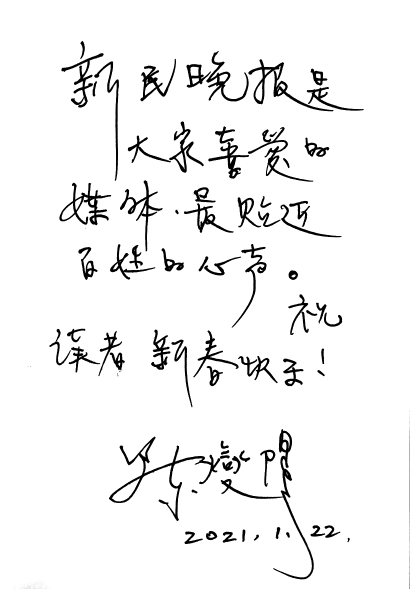 新民晚报是
大家喜爱的
媒体.最贴近
百姓的心声。
祝
读者新春快乐!
陈燮陽
2021.1.22.